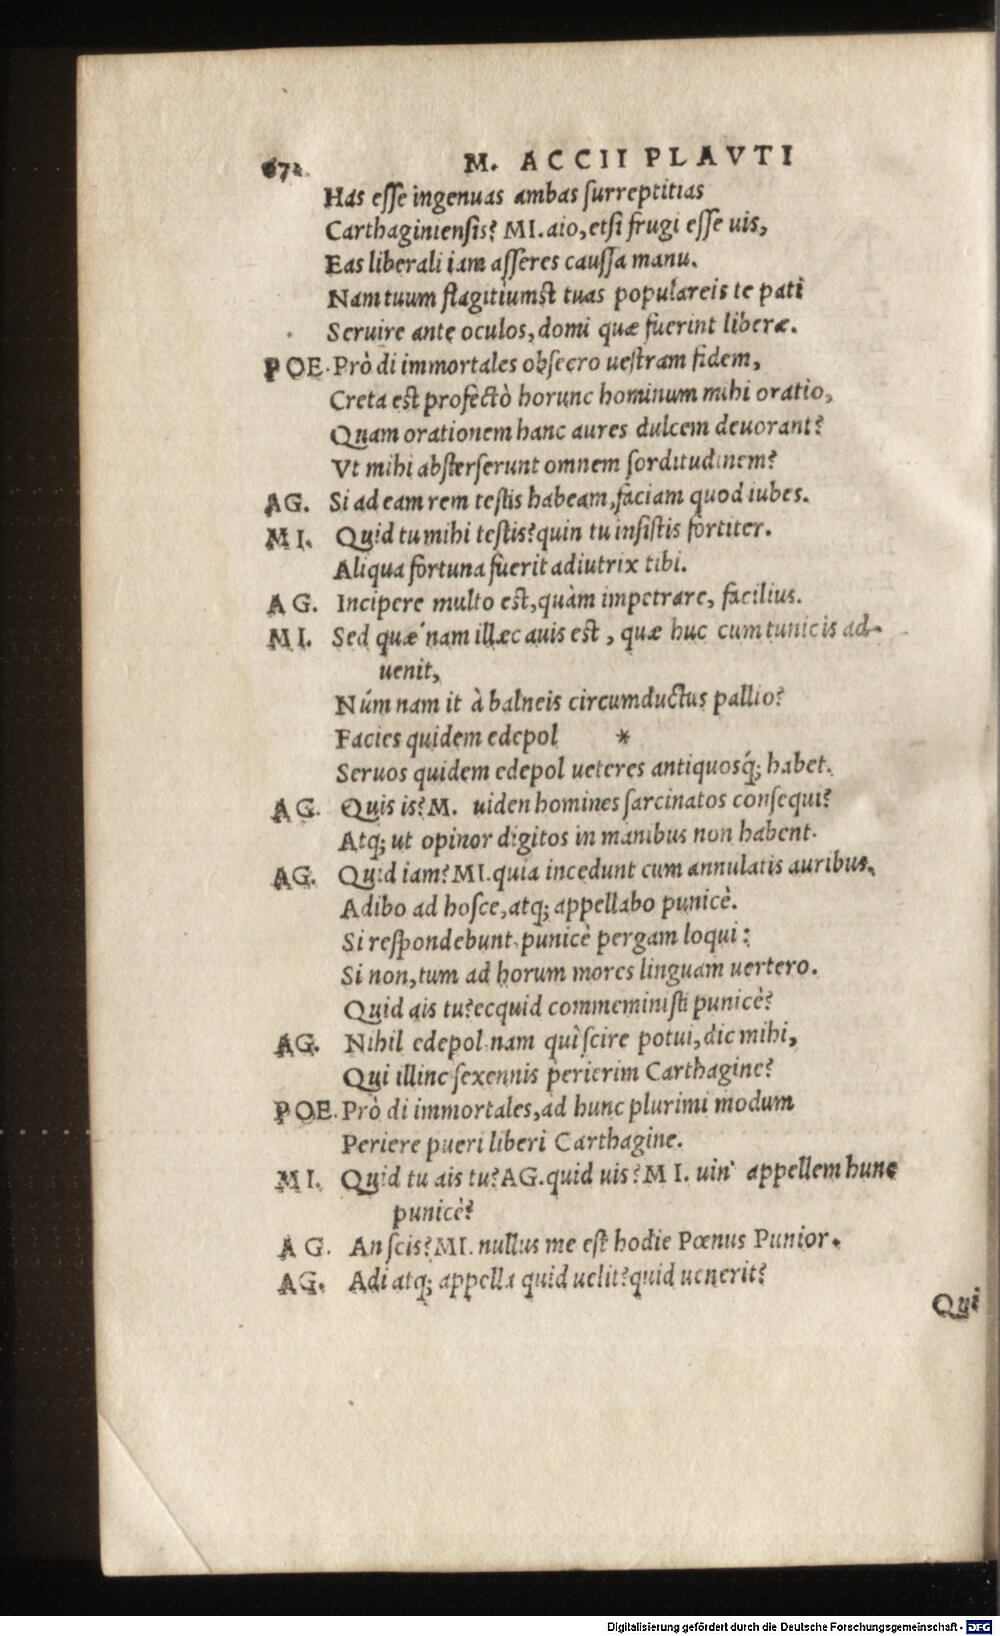 672 M. ACCII PLAVTI
Has esse ingenuas ambas surreptitias
Carthaginiensis? MI. aio, etsi frugi esse uis,
Eas liberali iam asseres caussa manu.
Nam tuum flagitiumst tuas populareis te pati
Seruire ante oculos, domi quæ fuerint liberæ.
POE. Prò di immortales obsecro uestram fidem,
Creta est profectò horunc hominum mihi oratio,
Quam orationem hanc aures dulcem deuorant?
Vt mihi absterserunt omnem sorditudinem?
AG. Si ad eam rem testis habeam, faciam quod iubes.
MI. Quid tu mihi testis? quin tu insistis fortiter.
Aliqua fortuna fuerit adiutrix tibi.
AG. Incipere multo est, quàm impetrare, facilius.
MI. Sed quæ nam illæc auis est, quæ huc cum tunicis ad-
uenit,
Núm nam it à balneis circumductus pallio?
Facies quidem edepol *
Seruos quidem edepol ueteres antiquosq́; habet.
AG. Quis is? M. uiden homines sarcinatos consequi?
Atq; ut opinor digitos in manibus non habent.
AG. Quid iam? MI. quia incedunt cum annulatis auribus.
Adibo ad hosce, atq; appellabo punicè.
Si respondebunt, punicè pergam loqui:
Si non, tum ad horum mores linguam uertero.
Quid ais tu? ecquid commeministi punicè?
AG. Nihil edepol nam quì scire potui, dic mihi,
Qui illinc sexennis perierim Carthagine?
POE. Prò di immortales, ad hunc plurimi modum
Periere pueri liberi Carthagine.
MI. Quid tu ais tu? AG. quid uis? MI. uin' appellem hunc
punicè?
AG. An scis? MI. nullus me est hodie Pœnus Punior.
AG. Adi atq; appella quid uelit? quid uenerit?
Qui
Digitalisierung gefördert durch die Deutsche Forschungsgemeinschaft - DFG